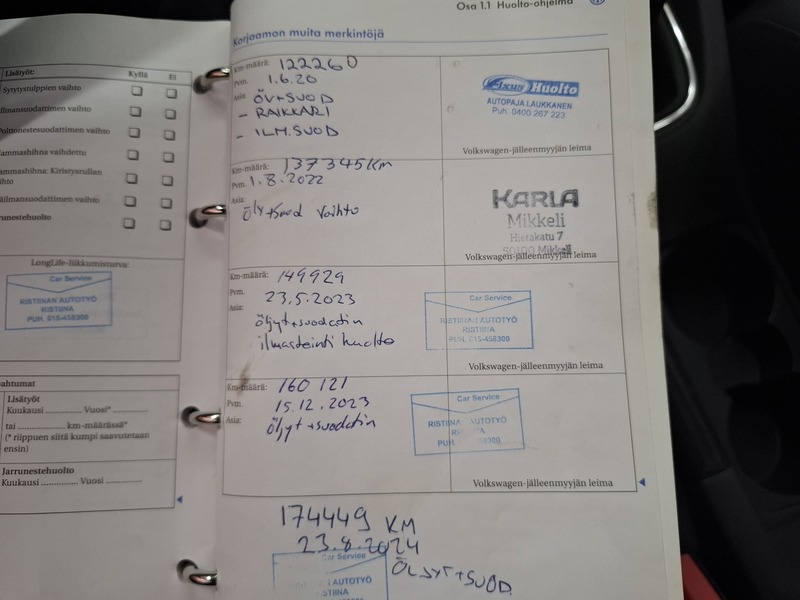 Osa 1.1 Huolto-ohjelma
Lisätyöt:
Kyllä
Ei
Sytytystulppien vaihto
lmansuodattimen vaihto
olttonestesuodattimen vaihto
ammashihna vaihdettu
ammashihna: Kiristysrullan
ihto
äilmansuodattimen vaihto
runestehuolto
LongLife-liikkumisturva:
Car Service
RISTIINAN AUTOTYÖ
RISTIINA
PUH. 015-458300
pahtumat
Lisätyöt
Kuukausi .............. Vuosi* ..............
tai .................... km-määrässä*
(* riippuen siitä kumpi saavutetaan
ensin)
Jarrunestehuolto
Kuukausi .............. Vuosi ..............
Korjaamon muita merkintöjä
Km-määrä: 122260
Pvm. 1.6.20
Asia: ÖV+SUOD
- RAIKKARI
- ILM.SUOD
Fixus Huolto
AUTOPAJA LAUKKANEN
Puh. 0400 267 223
Volkswagen-jälleenmyyjän leima
Km-määrä: 137345KM
Pvm. 1.8.2022
Asia: Öly+suod vaihto
KARLA
Mikkeli
Hietakatu 7
50100 Mikkeli
Volkswagen-jälleenmyyjän leima
Km-määrä: 149929
Pvm. 23.5.2023
Asia: öljyt+suodatin
ilmastointi huolto
Car Service
RISTIINAN AUTOTYÖ
RISTIINA
PUH. 015-458300
Volkswagen-jälleenmyyjän leima
Km-määrä: 160 121
Pvm. 15.12.2023
Asia: öljyt+suodatin
Car Service
RISTIINAN AUTOTYÖ
PUH.
Volkswagen-jälleenmyyjän leima
174449 KM
23.8.2024
ÖLJYT+SUOD.
Car Service
AUTOTYÖ
STIINA